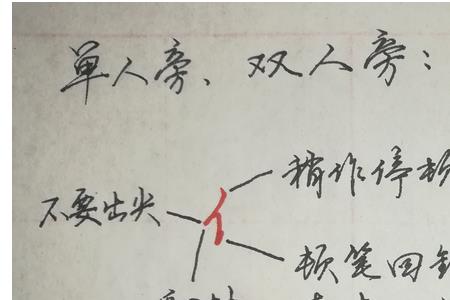 单人旁、双人旁：
稍作停顿
不要出尖
亻
顿笔回锋